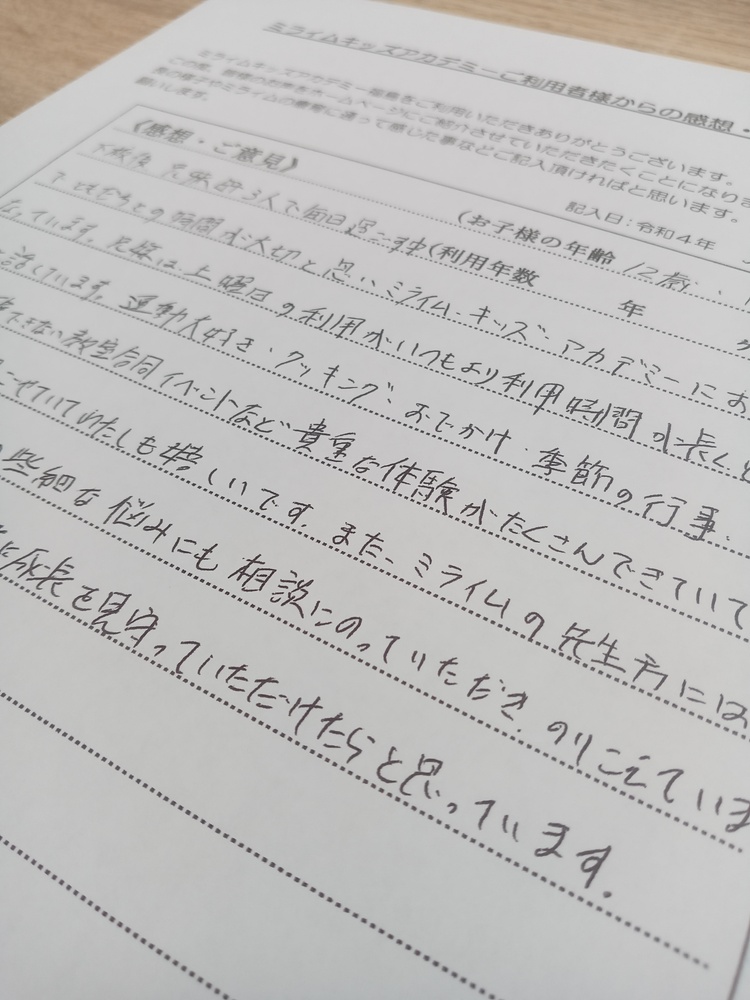 ミライムキッズアカデミーご利用者様からの感想・
ミライムキッズアカデミー
をご利用いただきありがとうございます。
この度、皆様のお声をホームページにご紹介させていただきたくことになりま
の様子やミライムの療育に通って感じた事などご記入頂ければと思います。
願いします。
記入日：令和４年
《感想・ご意見》
（お子様の年齢 12歳、
（利用年数 年
下校後、兄妹 3人で毎日過ご
との時間が大切と思い、ミライム・キッズ・アカデミーにお
ています。兄妹は土曜日の利用がいつもより利用時間が長く
しています。運動大好き・クッキング・おでかけ・季節の行事、
できない教室合同イベントなど、貴重な体験がたくさんできていて
ごせていてわたしも嬉しいです。また、ミライムの先生方には
些細な悩みにも相談にのっていただき、のりこえていま
成長を見守っていただけたらと思っています。